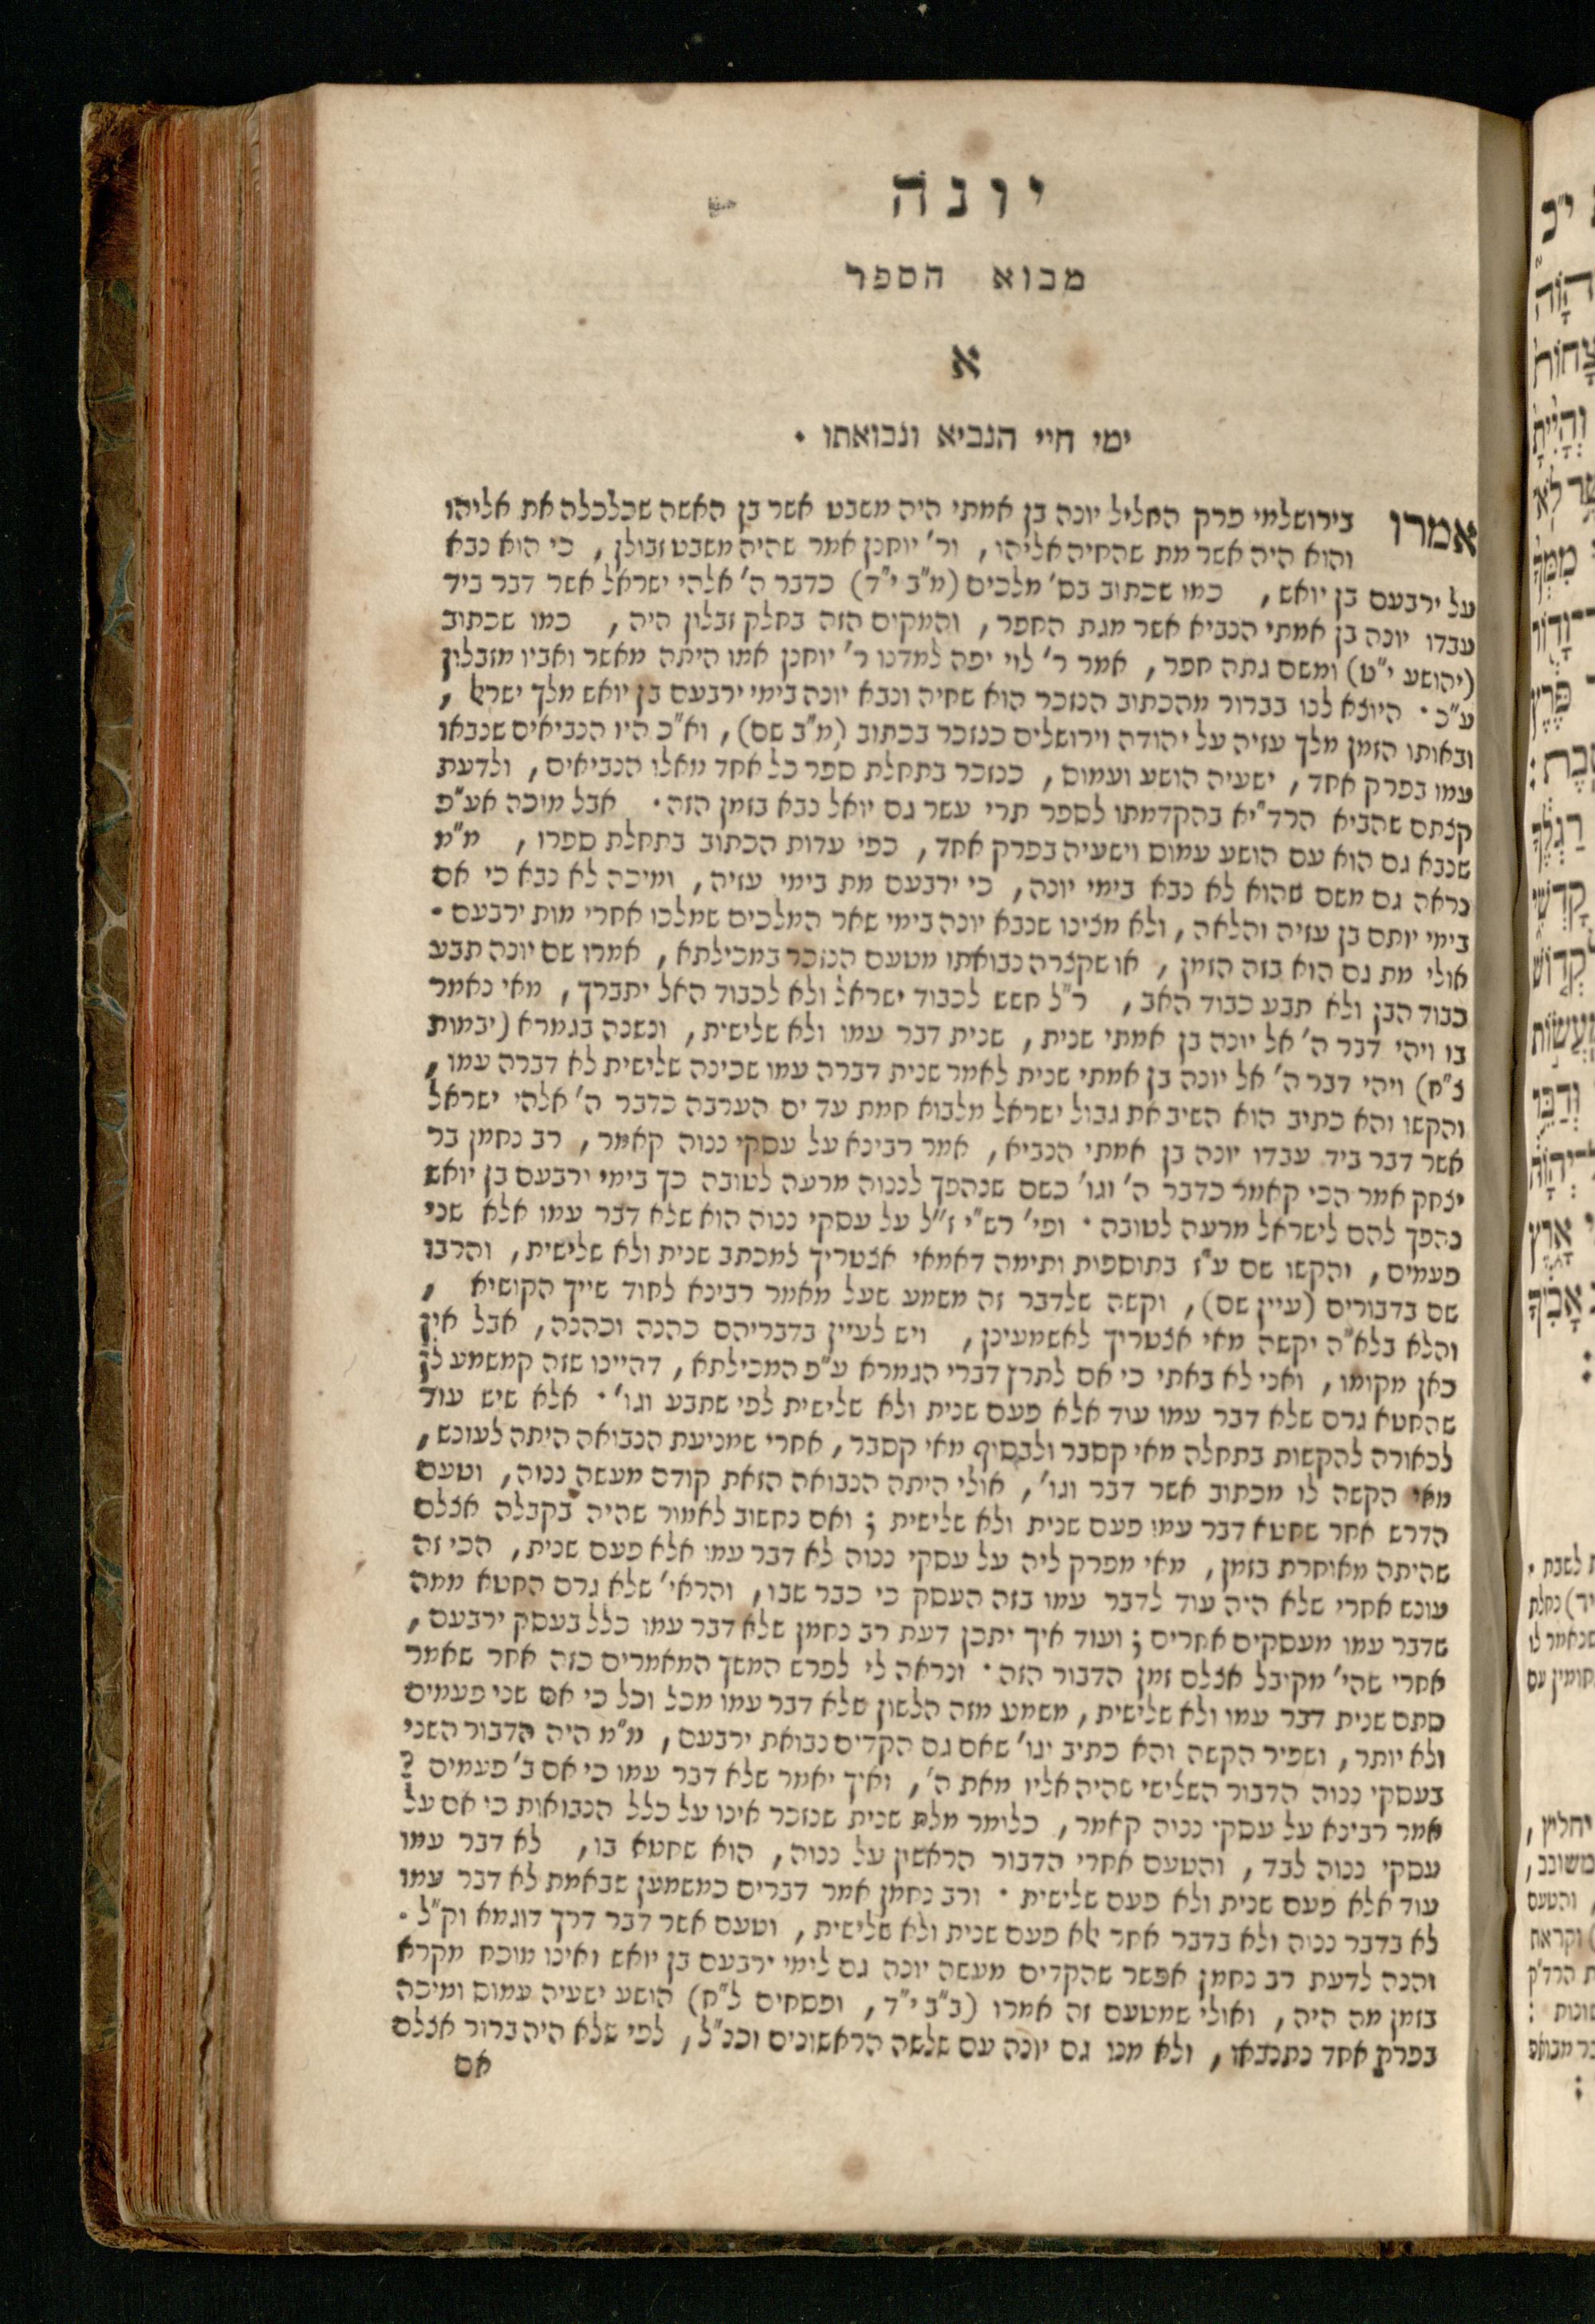 יונה
מבוא הספר
א
ימי חיי הנביא ונבואתו .
אמרו בירושלמי פרק החליל יונה בן אמתי היה משבט אשר בן האשה שכלכלה את אליהו
והוא היה אשר מת שהחיה אליהו, ור' יוחנן אמר שהיה משבט זבולן, כי הוא נבא
על ירבעם בן יואש, כמו שכתוב בס' מלכים (מ"ב י"ד) כדבר ה' אלהי ישראל אשר דבר ביד
עבדו יונה בן אמתי הנביא אשר מגת החפר, והמקום הזה בחלק זבלון היה, כמו שכתוב
(יהושע י"ט) ומשם גתה חפר, אמר ר' לוי יפה למדנו ר' יוחנן אמו היתה מאשר ואביו מזבלון
ע"כ . היוצא לנו בברור מהכתוב הנזכר הוא שחיה ונבא יונה בימי ירבעם בן יואש מלך ישראל,
ובאותו הזמן מלך עזיה על יהודה וירושלים כנזכר בכתוב (מ"ב שם), וא"כ היו הנביאים שנבאו
עמו בפרק אחד, ישעיה הושע ועמוס, כנזכר בתחלת ספר כל אחד מאלו הנביאים, ולדעת
קצתם שהביא הרד"יא בהקדמתו לספר תרי עשר גם יואל נבא בזמן הזה . אבל מיכה אע"פ
שנבא גם הוא עם הושע עמוס וישעיה בפרק אחד, כפי עדות הכתוב בתחלת ספרו, מ"מ
נראה גם משם שהוא לא נבא בימי יונה, כי ירבעם מת בימי עזיה, ומיכה לא נבא כי אם
בימי יותם בן עזיה והלאה, ולא מצינו שנבא יונה בימי שאר המלכים שמלכו אחרי מות ירבעם .
אולי מת גם הוא בזה הזמן, או שקצרה נבואתו מטעם הנזכר במכילתא, אמרו שם יונה תבע
כבוד הבן ולא תבע כבוד האב, ר"ל חשש לכבוד ישראל ולא לכבוד האל יתברך, מאי נאמר
בו ויהי דבר ה' אל יונה בן אמתי שנית, שנית דבר עמו ולא שלישית, ונשנה בגמרא (יבמות
צ"ח) ויהי דבר ה' אל יונה בן אמתי שנית לאמר שנית דברה עמו שכינה שלישית לא דברה עמו,
והקשו והא כתיב הוא השיב את גבול ישראל מלבוא חמת עד ים הערבה כדבר ה' אלהי ישראל
אשר דבר ביד עבדו יונה בן אמתי הנביא, אמר רבינא על עסקי ננוה קאמר, רב נחמן בר
יצחק אמר הכי קאמר כדבר ה' וגו' כשם שנהפך לננוה מרעה לטובה כך בימי ירבעם בן יואש
נהפך להם לישראל מרעה לטובה . ופי' רש"י ז"ל על עסקי ננוה הוא שלא דבר עמו אלא שני
פעמים, והקשו שם ע"ז בתוספות ותימה דאמאי אצטריך למכתב שנית ולא שלישית, והרבו
שם בדבורים (עיין שם), וקשה שלדבר זה משמע שעל מאמר רבינא לחוד שייך הקושיא,
והלא בלא"ה יקשה מאי אצטריך לאשמעינן, ויש לעיין בדבריהם כהנה וכהנה, אבל אין
כאן מקומו, ואני לא באתי כי אם לתרץ דברי הגמרא ע"פ המכילתא, דהיינו שזה קמשמע לן
שהחטא גרם שלא דבר עמו עוד אלא פעם שנית ולא שלישית לפי שתבע וגו' . אלא שיש עוד
לכאורה להקשות בתחלה מאי קסבר ולבסוף מאי קסבר, אחרי שמניעת הנבואה היתה לעונש,
מאי הקשה לו מכתוב אשר דבר וגו', אולי היתה הנבואה הזאת קודם מעשה ננוה, וטעם
הדרש אחר שחטא דבר עמו פעם שנית ולא שלישית ; ואם נחשוב לאמור שהיה בקבלה אצלם
שהיתה מאוחרת בזמן, מאי מפרק ליה על עסקי ננוה לא דבר עמו אלא פעם שנית, הכי זה
עונש אחרי שלא היה עוד לדבר עמו בזה העסק כי כבר שבו, והראי' שלא גרם החטא ממה
שדבר עמו מעסקים אחרים ; ועוד איך יתכן דעת רב נחמן שלא דבר עמו כלל בעסק ירבעם,
אחרי שהי' מקיבל אצלם זמן הדבור הזה . ונראה לי לפרש המשך המאמרים כזה אחר שאמר
סתם שנית דבר עמו ולא שלישית, משמע מזה הלשון שלא דבר עמו מכל וכל כי אם שני פעמים
ולא יותר, ושפיר הקשה והא כתיב וגו' שאם גם הקדים נבואת ירבעם, מ"מ היה הדבור השני
בעסקי ננוה הדבור השלישי שהיה אליו מאת ה', ואיך יאמר שלא דבר עמו כי אם ב' פעמים ?
אמר רבינא על עסקי ננוה קאמר, כלומר מלת שנית שנזכר אינו על כלל הנבואות כי אם על
עסקי ננוה לבד, והטעם אחרי הדבור הראשון על ננוה, הוא שחטא בו, לא דבר עמו
עוד אלא פעם שנית ולא פעם שלישית . ורב נחמן אמר דברים כמשמען שבאמת לא דבר עמו
לא בדבר ננוה ולא בדבר אחר אלא פעם שנית ולא שלישית, וטעם אשר דבר דרך דוגמא וק"ל .
והנה לדעת רב נחמן אפשר שהקדים מעשה יונה גם לימי ירבעם בן יואש ואינו מוכח מקרא
בזמן מה היה, ואולי שמטעם זה אמרו (ב"ב י"ד, ופסחים ל"ח) הושע ישעיה עמוס ומיכה
בפרק אחד נתנבאו, ולא מנו גם יונה עם שלשה הראשונים וכנ"ל, לפי שלא היה ברור אצלם
אם